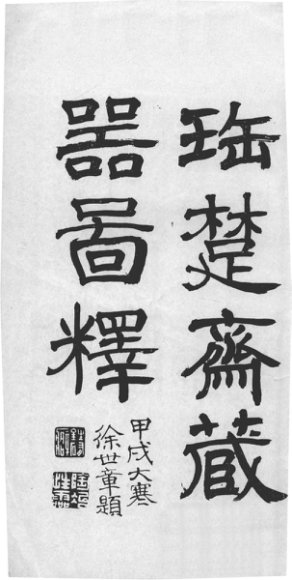 珤楚齋藏
器啚釋
甲戌大寒
徐世章題